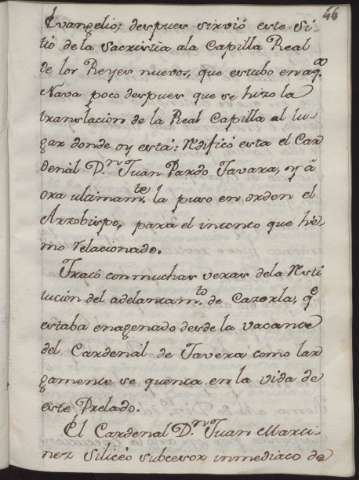 46
Evangelio; despues sirvió este Si-
tio de la Sacristia ala Capilla Real
de los Reyes nuevos, que estubo en aq.ª
Nave poco despues que se hizo la
translacion de la Real Capilla al lu-
gar donde oy está: Redificó esta el Car-
denál D.ⁿ Juan Pardo Tavera, y ã
ora ultimam.te la puso en orden el
Arzobispo, para el intento que he-
mos relacionado.
Trató con muchas veras de la Resti
tucion del adelantam.to de Cazorla, q.e
estaba enagenado desde la vacante
del Cardenál de Tavera como lar
gamente se quenta en la vida de
este Prelado.
El Cardenal D.ⁿ Juan Marti
nez Siliceo subcesor inmediato de